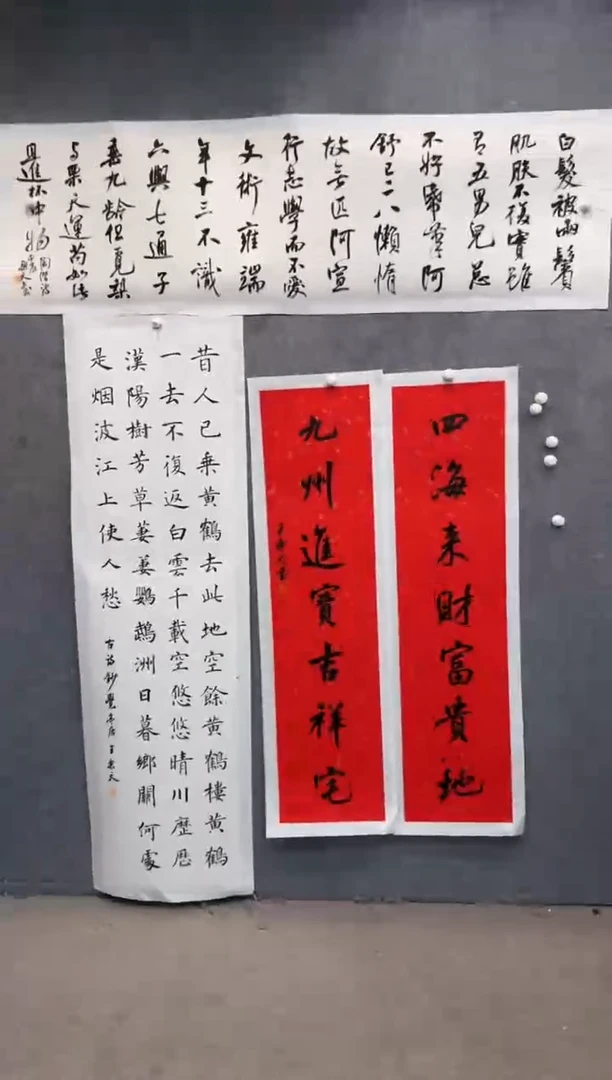 白髮被兩鬢
肌肤不復實雖
有五男兒总
不好紙筆阿
舒已二八懶惰
故无匹阿宣
行志學而不愛
文術雍端
年十三不識
六與七通子
垂九齡但覓梨
与栗天運苟如此
且進杯中物
昔人已乘黄鶴去此地空餘黄鶴樓黄鶴
一去不復返白雲千載空悠悠晴川歷歷
漢陽樹芳草萋萋鸚鵡洲日暮鄉關何處
是烟波江上使人愁
四海来財富貴地
九州進寶吉祥宅